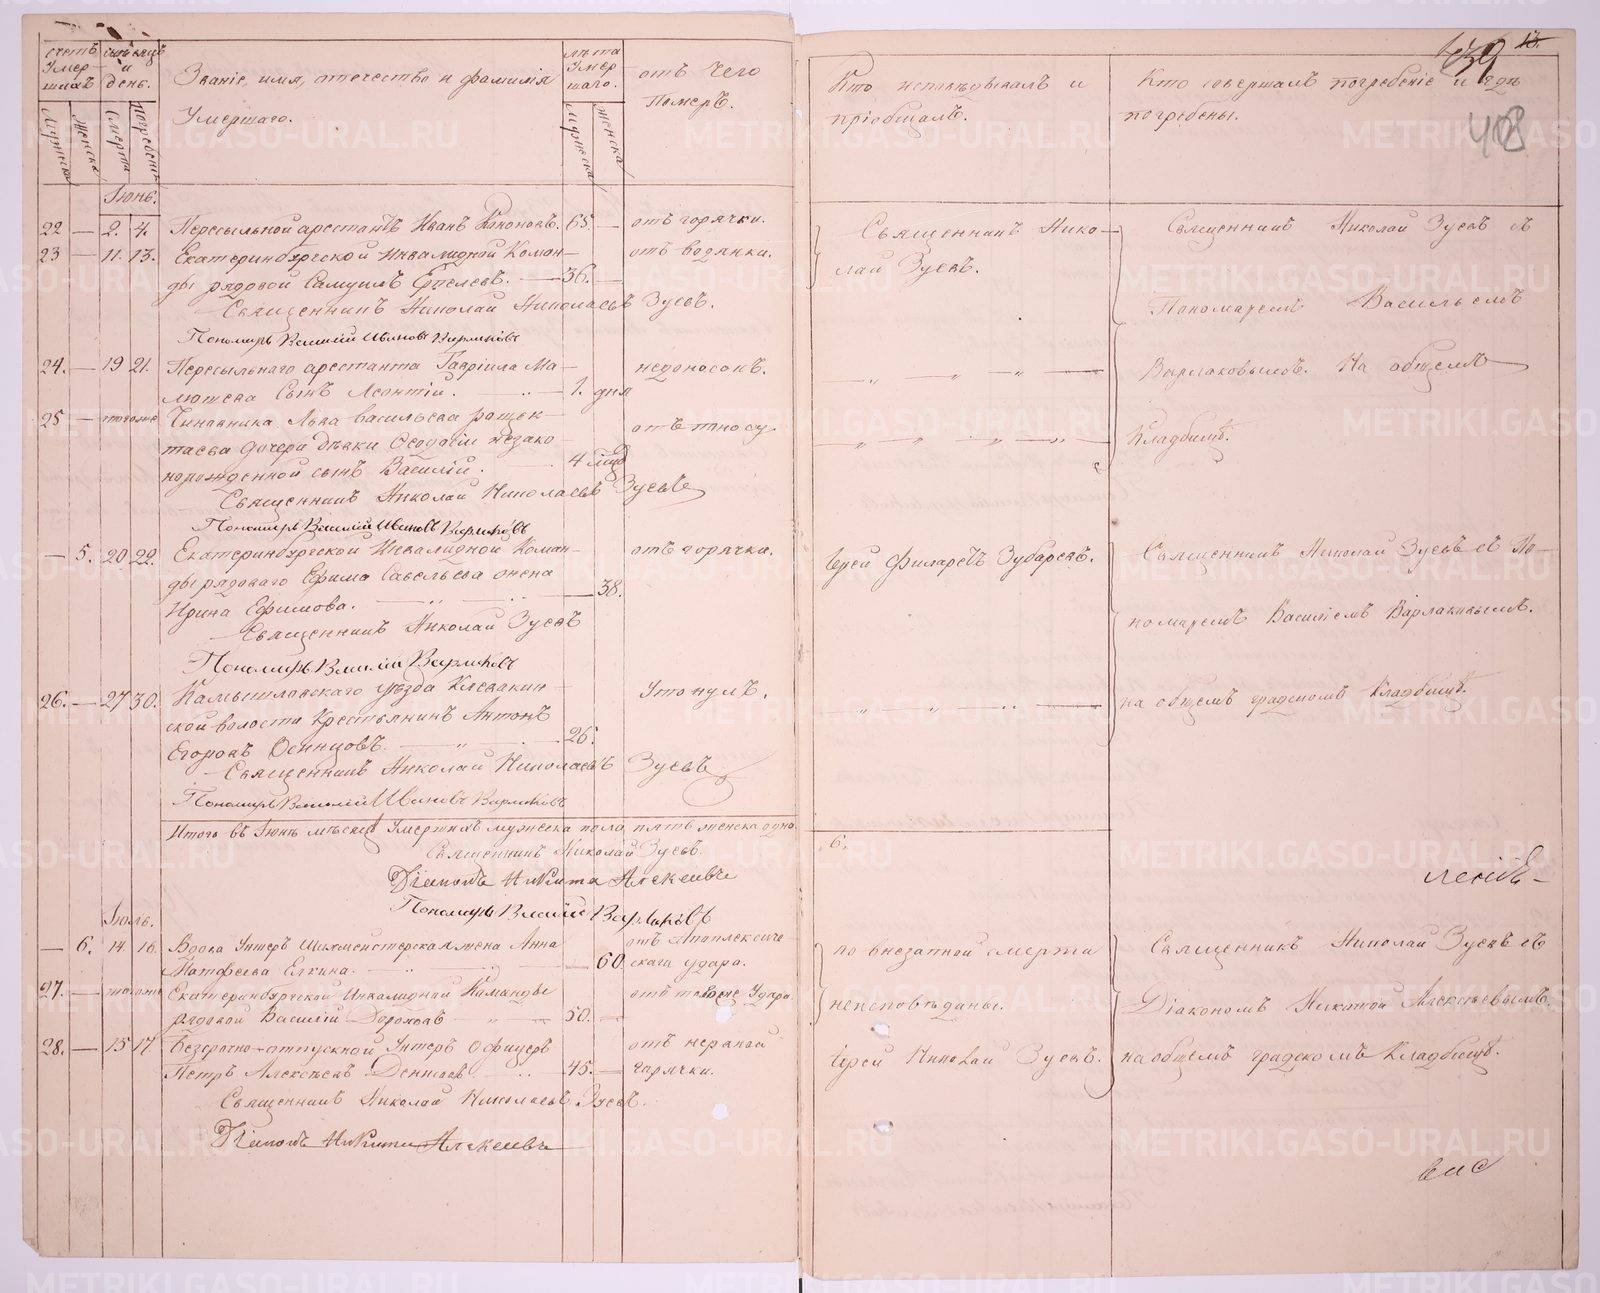 счетъ умершихъ
мѣсяцъ и день.
Званіе, имя, отечество и фамилія
Умершаго.
лѣта Умершаго.
отъ чего
Померъ.
Мужеска
Женска
Смерти
Погребенія
Мужеска
Женска
Кто исповѣдывалъ и
пріобщалъ.
Кто совершалъ погребеніе и гдѣ
погребены.
408
Іюнь.
22 — 2. 4. Пересыльной арестантъ Иванъ 65. — отъ горячки.
23 — 11. 13. Екатеринбургской Инвалидной Коман- отъ водянки.
ды рядовой Самуилъ — 36. —
Священникъ Николай Николаевъ Зуевъ.
Пономарь Василій Ивановъ Варлаковъ
24. — 19 21. Пересыльнаго арестанта Гавріила Ма- недоносокъ.
лютева Сынъ Леонтій. — 1. дня
25 — тогоже Чиновника Льва Васильева
отъ поносу
дочери дѣвки Ѳеодосіи незако-
норожденной сынъ Василій. 4 мѣс.
Священникъ Николай Николаевъ Зуевъ
Пономарь Василій Ивановъ Варлаковъ
— 5. 20 22. Екатеринбургской Инвалидной Коман- отъ горячки.
ды рядоваго Ефима Савельева жена
Ирина Ефимова. — 38.
Священникъ Николай Зуевъ
Пономарь Василій Варлаковъ
26. — 27 30. Камышловскаго уѣзда Клевакин- Утонулъ.
ской волости Крестьянинъ Антонъ
Егоровъ Осинцовъ. 26.
Священникъ Николай Николаевъ Зуевъ
Пономарь Василій Ивановъ Варлаковъ
Итого въ Іюнѣ мѣсяцѣ Умершихъ мужеска пола пять женска одна
Священникъ Николай Зуевъ.
Діаконъ Никита Алексеевъ
Пономарь Василій Варлаковъ
Іюль.
— 6. 14 16. Вдова Унтеръ Шихмейстерская жена Анна отъ Апоплексиче
Матфеева Елкина. — 60. скаго удара.
27. — тогоже Екатеринбургской Инвалидной Команды отъ таковаже Удара
рядовой Василій Дорохов — 50. —
28. — 15 17 Безсрочно-отпускной Унтеръ Офицеръ отъ нервной
Петръ Алексѣевъ — 45. — Горячки.
Священникъ Николай Николаевъ Зуевъ.
Діаконъ Никита Алексеевъ
Священникъ Нико-
лай Зуевъ.
Священникъ Николай Зуевъ съ
Пономаремъ Васильемъ
Варлаковымъ. На общемъ
Кладбищѣ.
Іерей Филаретъ Зубаревъ.
Священникъ Николай Зуевъ съ По-
номаремъ Василіемъ Варлаковымъ.
на общемъ градскомъ Кладбищѣ.
6.
по внезапной смерти
неисповѣданы.
Іерей Николай Зуевъ.
Священникъ Николай Зуевъ съ
Діакономъ Никитой Алексѣевымъ
на общемъ градскомъ Кладбищѣ.
METRIKI.GASO-URAL.RU